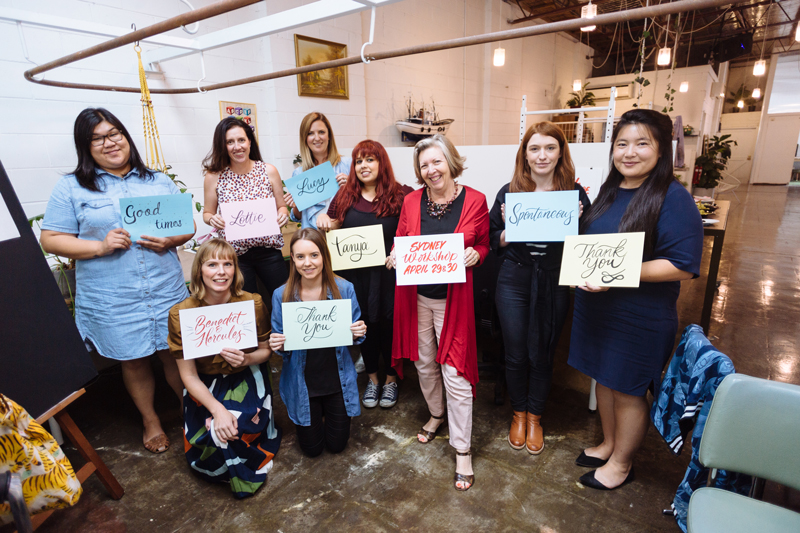 Good
times
Lottie
Lucy
Tanya
SYDNEY
WORKSHOP
APRIL 29&30
Spontaneous
Thank
You
Benedict
&
Hercules
Thank
You